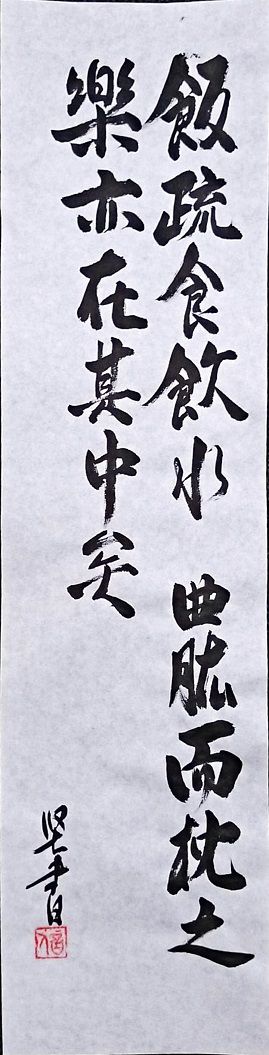 飯疏食飲水 曲肱而枕之
樂亦在其中矣